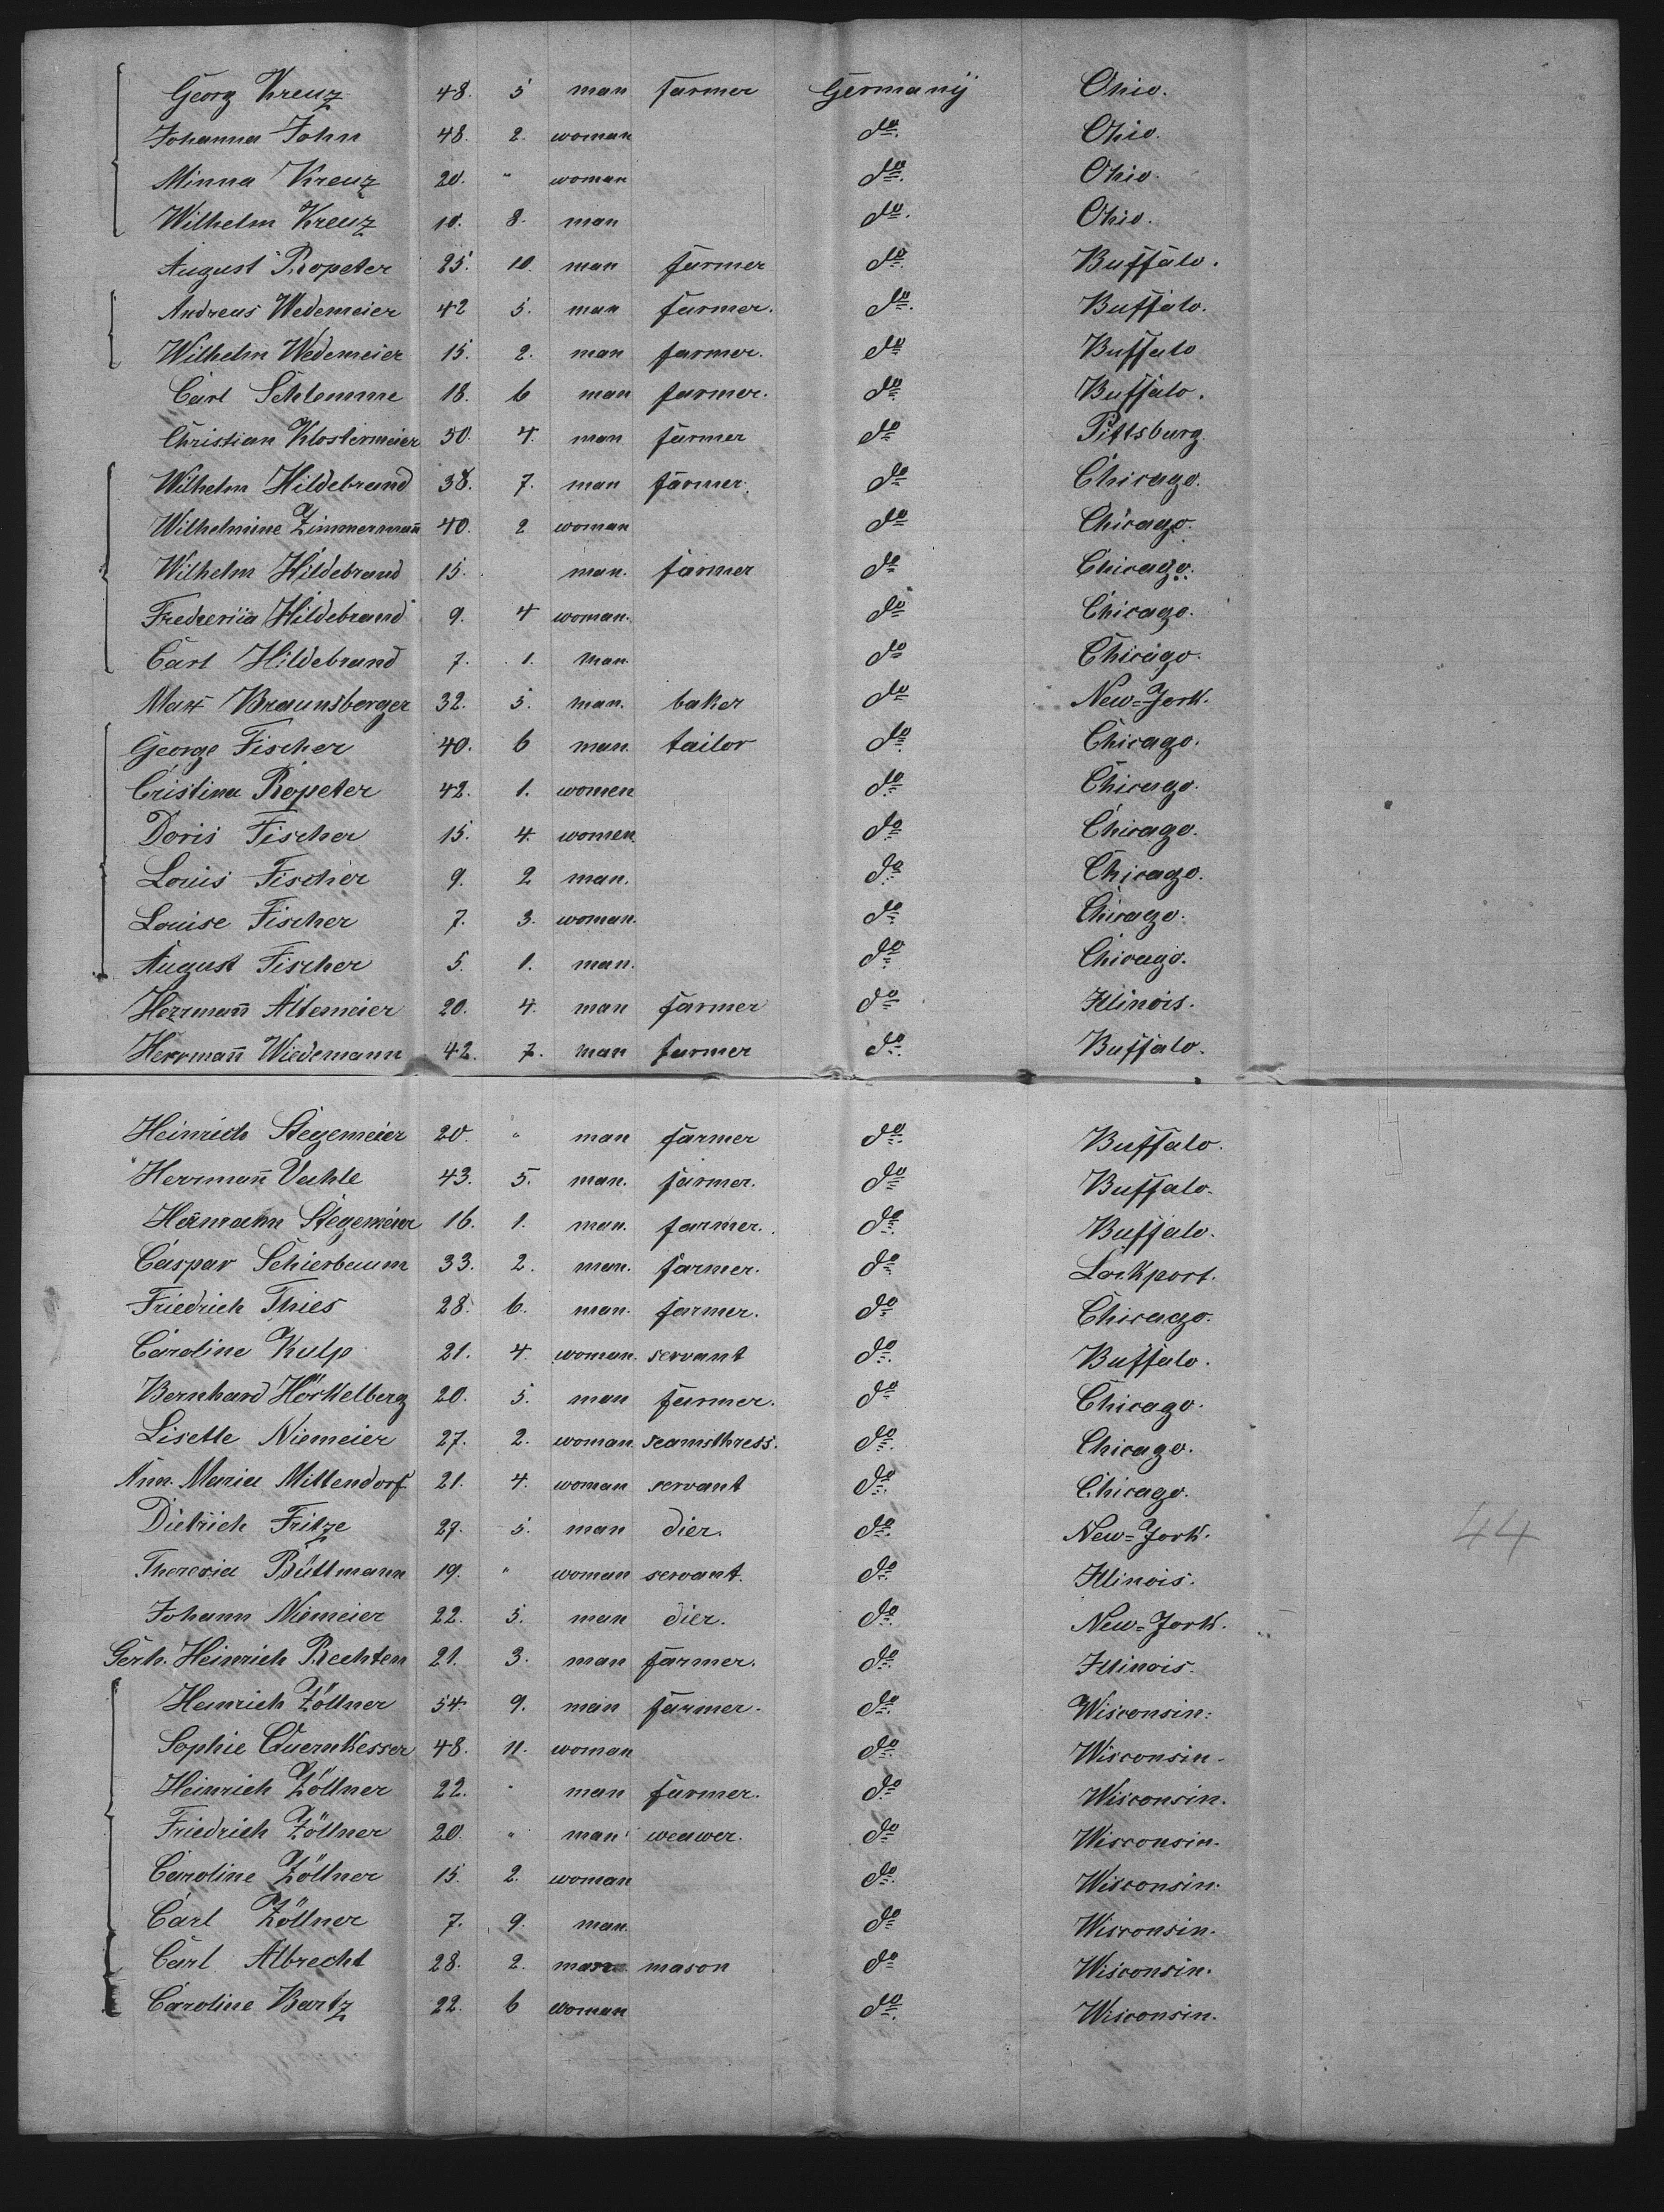 Georg Kreuz 48. 5 man farmer Germany Ohio.
Johanna John 48. 2. woman do. Ohio.
Minna Kreuz 20. " woman do. Ohio.
Wilhelm Kreuz 10. 8. man do. Ohio.
August Ropeter 25. 10. man farmer do. Buffalo.
Andreas Wedemeier 42 5. man farmer. do. Buffalo.
Wilhelm Wedemeier 15. 2. man farmer. do Buffalo
Carl Schlemme 18. 6 man farmer. do Buffalo.
Christian Klostermeier 50. 4. man farmer do Pittsburg
Wilhelm Hildebrand 38. 7. man farmer. do Chicago.
Wilhelmine Zimmermañ 40. 2 woman do Chicago.
Wilhelm Hildebrand 15. man. farmer do Chicago.
Hildebrand 9. 4 woman. do Chicago.
Carl Hildebrand 7. 1. man. do Chicago.
Max Braunsberger 32. 5. man. baker do New=Jork.
George Fischer 40. 6 man. tailor do. Chicago.
Cristina Ropeter 42. 1. women do. Chicago.
Doris Fischer 15. 4. women. do Chicago.
Louis Fischer 9. 2 man. do. Chicago.
Louise Fischer 7. 3. woman. do. Chicago.
August Fischer 5. 1. man. do. Chicago.
Herrmañ Altemeier 20. 4. man farmer do Illinois.
Herrmañ Wiedemann 42. 7. man farmer do. Buffalo.
Heinrich Stegemeier 20. " man farmer do. Buffalo.
Herrmañ Vahle 43. 5. man. farmer. do Buffalo.
Hermann Stegemeier 16. 1. man. farmer. do. Buffalo.
Caspar Schierbaum 33. 2. man. farmer. do Lockport.
Friedrich Thies 28. 6. man. farmer. do Chicago.
Caroline Kulp 21. 4. woman. servant do. Buffalo.
Bernhard Hörkelberg 20. 5. man farmer. do Chicago.
Lisette Niemeier 27. 2. woman. seamsthress. do. Chicago.
Ann. Maria Mittendorf 21. 4. woman servant do. Chicago.
Dietrich Fritze 27. 5. man dier. do. New=Jork.
Theresia Büttmann 19. " woman servant. do. Illinois.
Johann Niemeier 22. 5. man dier. do. New=Jork.
Gerh. Heinrich Rechtem 21. 3. man farmer. do. Illinois.
Heinrich Zöllner 54. 9. man farmer. do. Wisconsin.
Sophie Quernkesser 48. 11. woman do. Wisconsin.
Heinrich Zöllner 22. " man farmer. do. Wisconsin.
Friedrich Zöllner 20. " man weawer. do. Wisconsin.
Caroline Zöllner 15. 2. woman do. Wisconsin.
Carl Zöllner 7. 9. man. do Wisconsin.
Carl Albrecht 28. 2. man mason do Wisconsin.
Caroline Bartz 22. 6 woman do. Wisconsin.
44